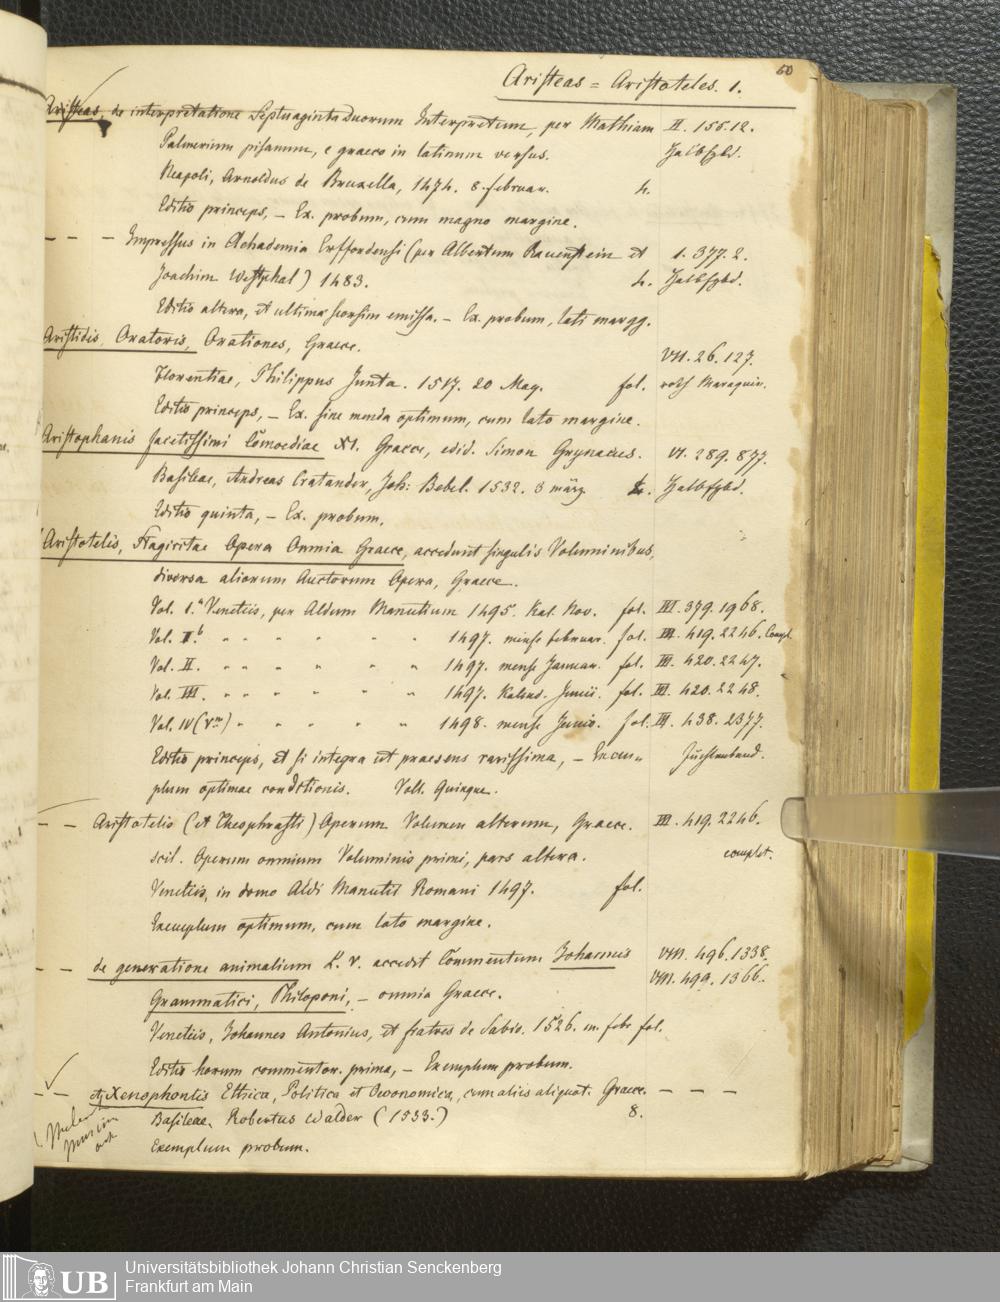 60
Aristeas = Aristoteles. 1.
Aristeas, de interpretatione Septuaginta duorum Interpretum, per Mathiam II. 155.12.
Palmerium pisanum, e graeco in latinum versus. Halbfzbd.
Neapoli, Arnoldus de Bruxella, 1474. 8. februar. 4.
Editio princeps, – Ex. probum, cum magno margine.
– – – Impressus in Achademia Erffordensi (per Albertum Ravenstein et 1. 377. 2.
Joachim Westphal) 1483. 4. Halbfzbd.
Editio altera, et ultima seorsim emissa. – Ex. probum, lati margg.
Aristidis, Oratoris, Orationes, Graece. VII. 26. 127.
Florentiae, Philippus Junta. 1517. 20 May. fol. roth Maroquin.
Editio princeps, – Ex. sine menda optimum, cum lato margine.
Aristophanis facetissimi Comoediae XI. Graece, edid. Simon Grynaeus. VI. 289. 877.
Basileae, Andreas Cratander, Joh: Bebel. 1532. 3 märz 4. Halbfzbd.
Editio quinta, – Ex. probum.
Aristotelis, Stagiritae Opera Omnia Graece, accedunt singulis Voluminibus,
diversa aliorum Auctorum Opera, Graece.
Vol. I.a Venetiis, per Aldum Manutium 1495. Kal. Nov. fol. III. 379. 1968.
Vol. I.b " " " " " " 1497. mense februar. fol. III. 419. 2246. Compl.
Vol. II. " " " " " " 1497. mense Januar. fol. III. 420. 2247.
Vol. III. " " " " " " 1497. Kalend. Junii. fol. III. 420. 2248.
Vol. IV (Vm) " " " " " 1498. mense Junio. fol. III. 438. 2377.
Editio princeps, et si integra ut praesens rarissima, – Exem- Juchtenband.
plum optimae condctionis. Voll. Quinque.
– – Aristotelis (et Theophrasti) Operum Volumen alterum, Graece. III. 419. 2246.
scil. Operum omnium Voluminis primi, pars altera. complet.
Venetiis, in domo Aldi Manutii Romani 1497. fol.
Exemplum optimum, cum lato margine.
– – de generatione animalium L. V. accedit Commentum Johannis VIII. 496. 1338.
Grammatici, Philoponi, – omnia Graece. VIII. 499. 1366.
Venetiis, Johannes Antonius, et fratres de Sabio. 1526. m. febr. fol.
Editio horum commentor. prima, – Exemplum probum.
– – et Xenophontis Ethica, Politica et Oeconomica, cum aliis aliquot. Graece. – – –
Basileae, Robertus Walder (1533.) 8.
Exemplum probum.
Universitätsbibliothek Johann Christian Senckenberg
Frankfurt am Main
UB